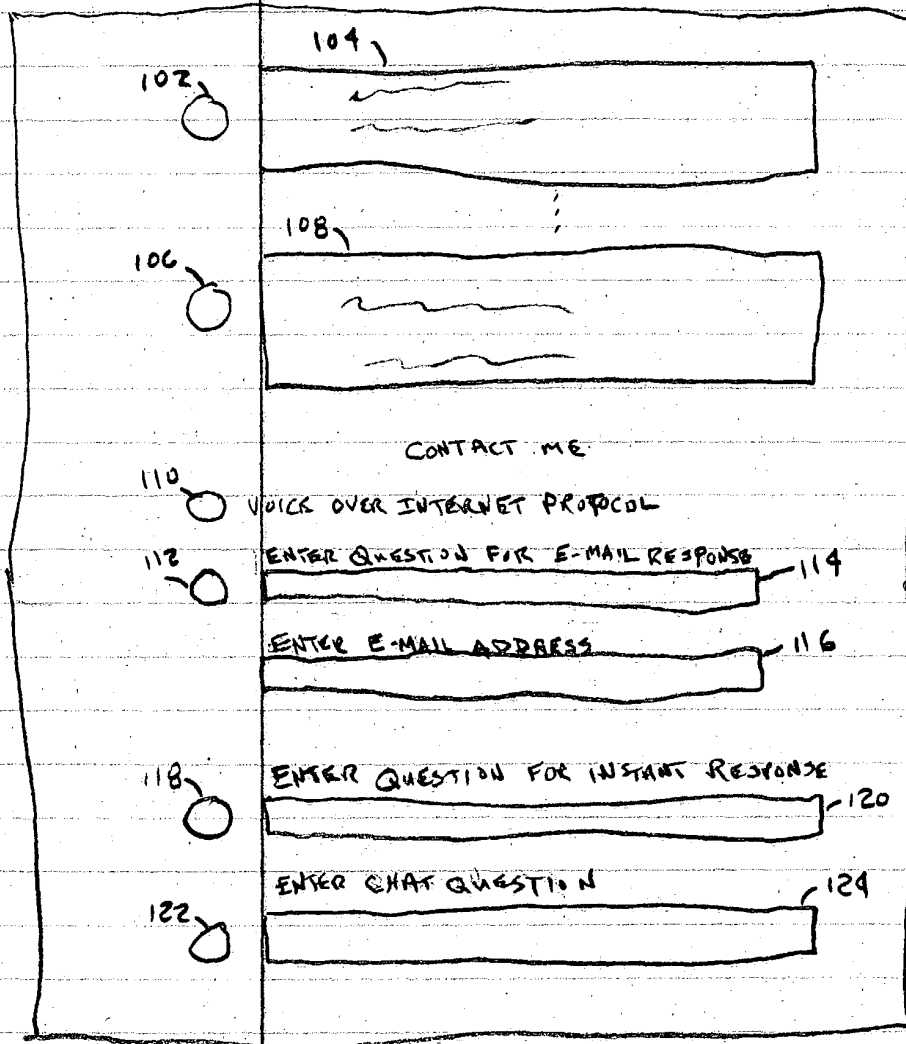 104
102
108
106
CONTACT ME
110
VOICE OVER INTERNET PROTOCOL
ENTER QUESTION FOR E-MAIL RESPONSE
112
114
ENTER E-MAIL ADDRESS
116
118
ENTER QUESTION FOR INSTANT RESPONSE
120
ENTER CHAT QUESTION
124
122